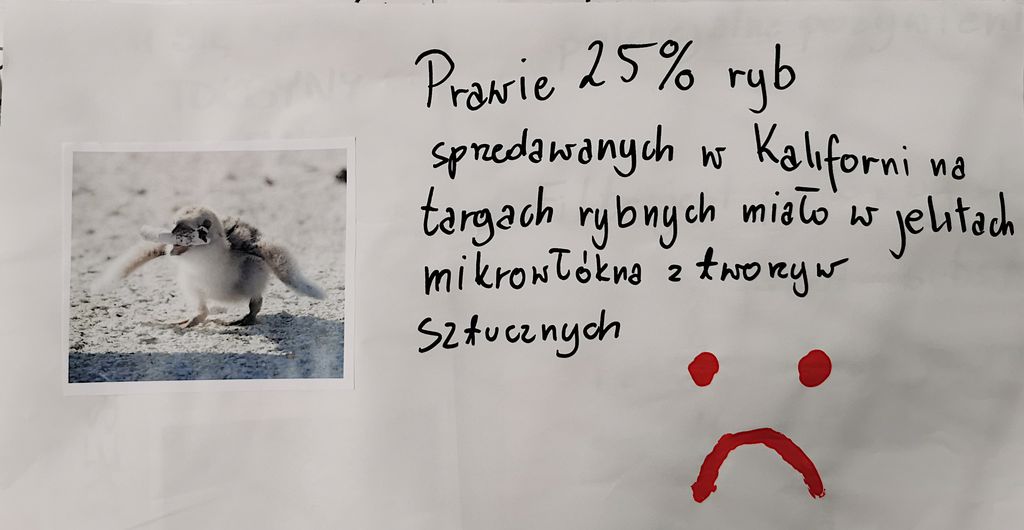 Prawie 25% ryb
sprzedawanych w Kaliforni na
targach rybnych miało w jelitach
mikrowłókna z tworzyw
sztucznych